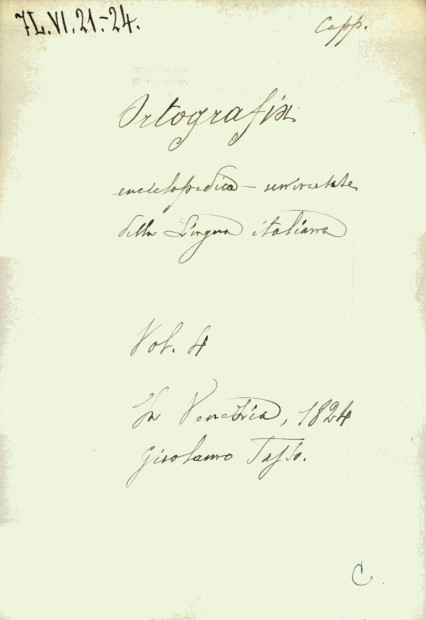 7L.VI.21-24.
Capp.
Ortografia
enciclopedica - universale
della Lingua italiana
Vol. 4
In Venezia, 1824
Girolamo Tasso.
C